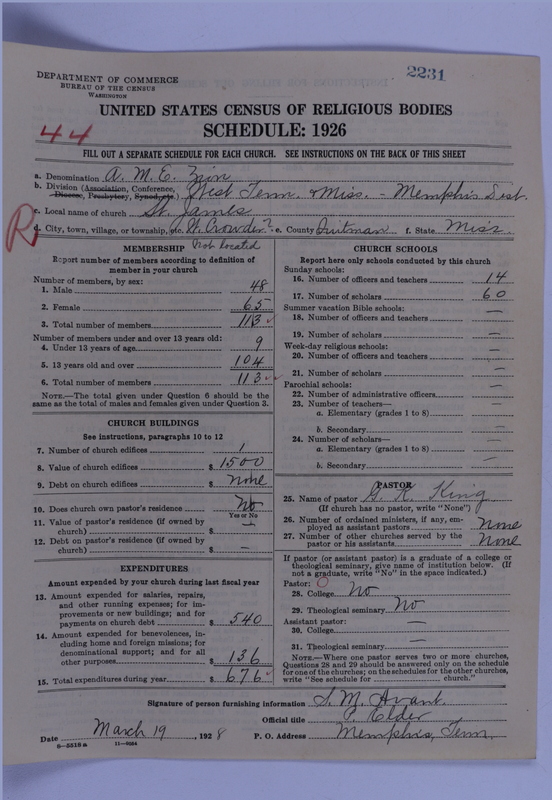 2231
DEPARTMENT OF COMMERCE
BUREAU OF THE CENSUS
WASHINGTON
UNITED STATES CENSUS OF RELIGIOUS BODIES
44
SCHEDULE: 1926
FILL OUT A SEPARATE SCHEDULE FOR EACH CHURCH. SEE INSTRUCTIONS ON THE BACK OF THIS SHEET
a. Denomination A. M. E. Zion
b. Division (Association, Conference, Diocese, Presbytery, Synod, etc.) West Tenn. & Miss. - Memphis Dist.
c. Local name of church St. James
R
d. City, town, village, or township, etc. W. Crowder? e. County Quitman f. State Miss
Not located
MEMBERSHIP
Report number of members according to definition of
member in your church
Number of members, by sex:
1. Male 48
2. Female 65
3. Total number of members 113 ✓
Number of members under and over 13 years old:
4. Under 13 years of age 9
5. 13 years old and over 104
6. Total number of members 113 ✓
NOTE.—The total given under Question 6 should be the
same as the total of males and females given under Question 3.
CHURCH BUILDINGS
See instructions, paragraphs 10 to 12
7. Number of church edifices 1
8. Value of church edifices $ 1500
9. Debt on church edifices $ none
10. Does church own pastor's residence No
Yes or No
11. Value of pastor's residence (if owned by
church) $ —
12. Debt on pastor's residence (if owned by
church) $ —
EXPENDITURES
Amount expended by your church during last fiscal year
13. Amount expended for salaries, repairs,
and other running expenses; for im-
provements or new buildings; and for
payments on church debt $ 540
14. Amount expended for benevolences, in-
cluding home and foreign missions; for
denominational support; and for all
other purposes $ 136
15. Total expenditures during year $ 676 ✓
CHURCH SCHOOLS
Report here only schools conducted by this church
Sunday schools:
16. Number of officers and teachers 14
17. Number of scholars 60
Summer vacation Bible schools:
18. Number of officers and teachers —
19. Number of scholars —
Week-day religious schools:
20. Number of officers and teachers —
21. Number of scholars —
Parochial schools:
22. Number of administrative officers —
23. Number of teachers—
a. Elementary (grades 1 to 8) —
b. Secondary —
24. Number of scholars—
a. Elementary (grades 1 to 8) —
b. Secondary —
PASTOR
25. Name of pastor G. R. King
(If church has no pastor, write "None")
26. Number of ordained ministers, if any, em-
ployed as assistant pastors None
27. Number of other churches served by the
pastor or his assistants None
If pastor (or assistant pastor) is a graduate of a college or
theological seminary, give name of institution below. (If
not a graduate, write "No" in the space indicated.)
Pastor: 0
28. College No
29. Theological seminary No
Assistant pastor:
30. College —
31. Theological seminary —
NOTE.—Where one pastor serves two or more churches,
Questions 28 and 29 should be answered only on the schedule
for one of the churches; on the schedules for the other churches,
write "See schedule for church."
Signature of person furnishing information S. M. Avant.
Official title P. Elder
Date March 19, 1928 P. O. Address Memphis, Tenn.
9-5518a 11-9534